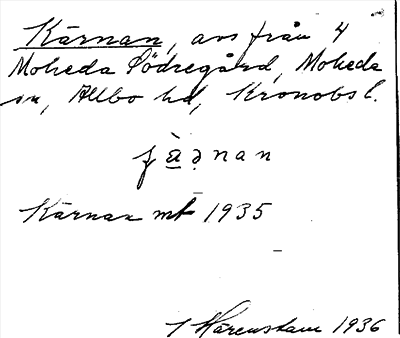 Kärnan, avs från 4
Moheda Södregård, Moheda
sn, Allbo hd, Kronobs l.
Kärnan mt 1935
Härenstam 1936